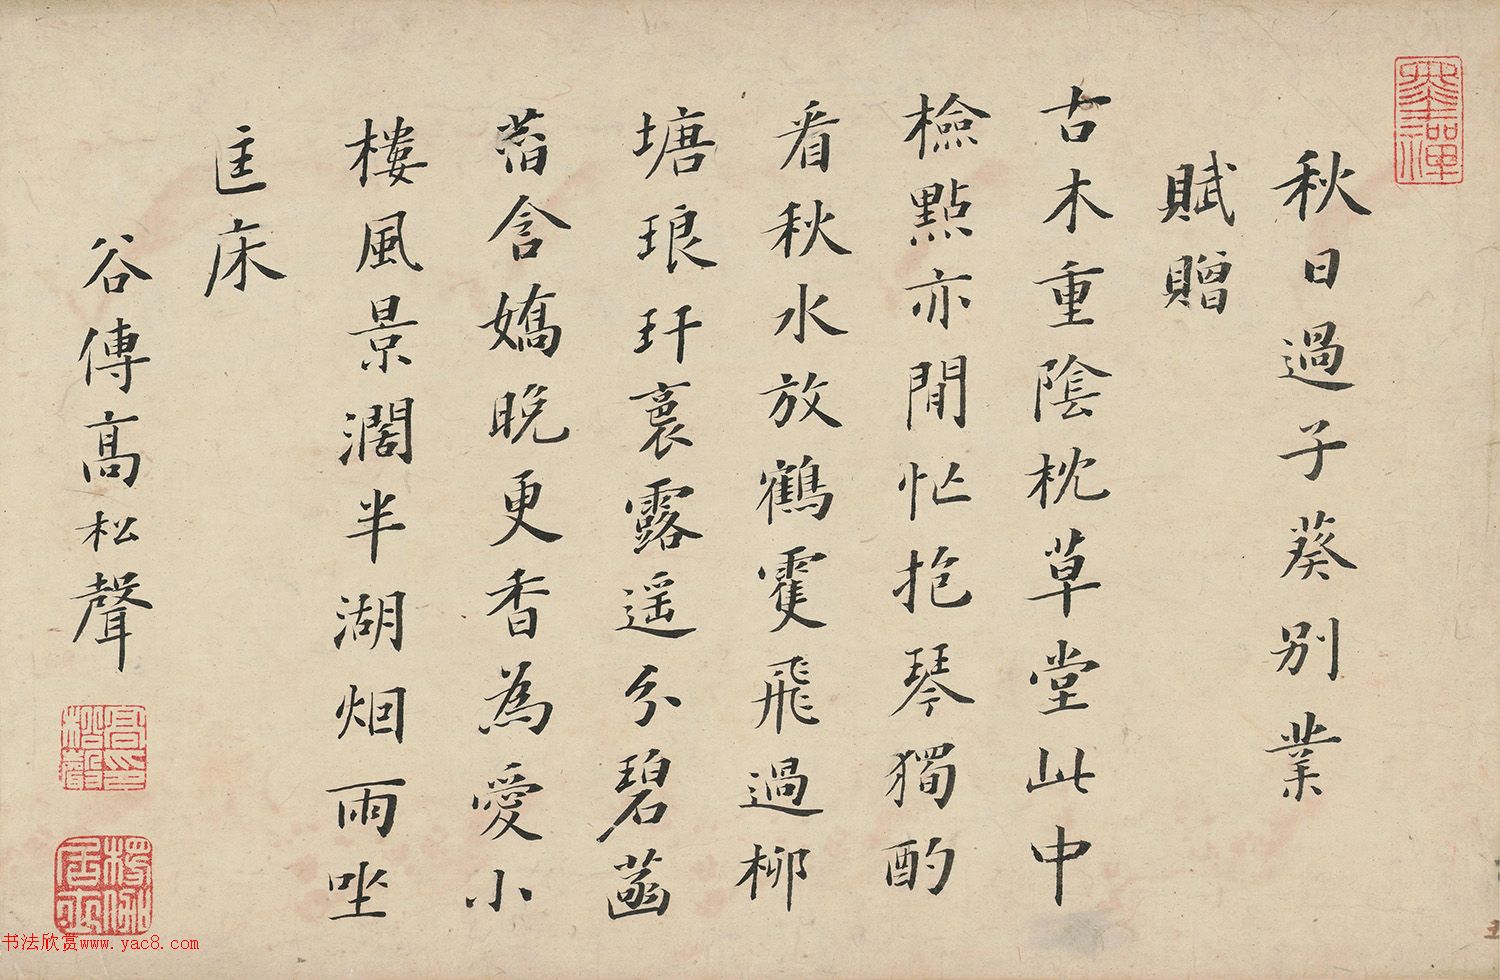 秋日過子葵別業
賦贈
古木重陰枕草堂此中
檢點亦閒忙抱琴獨酌
看秋水放鶴隻飛過柳
塘琅玕裹露遥分碧菡
萏含嬌晚更香為愛小
樓風景濶半湖烟雨坐
匡床
谷傳高松聲
书法欣赏www.yac8.com